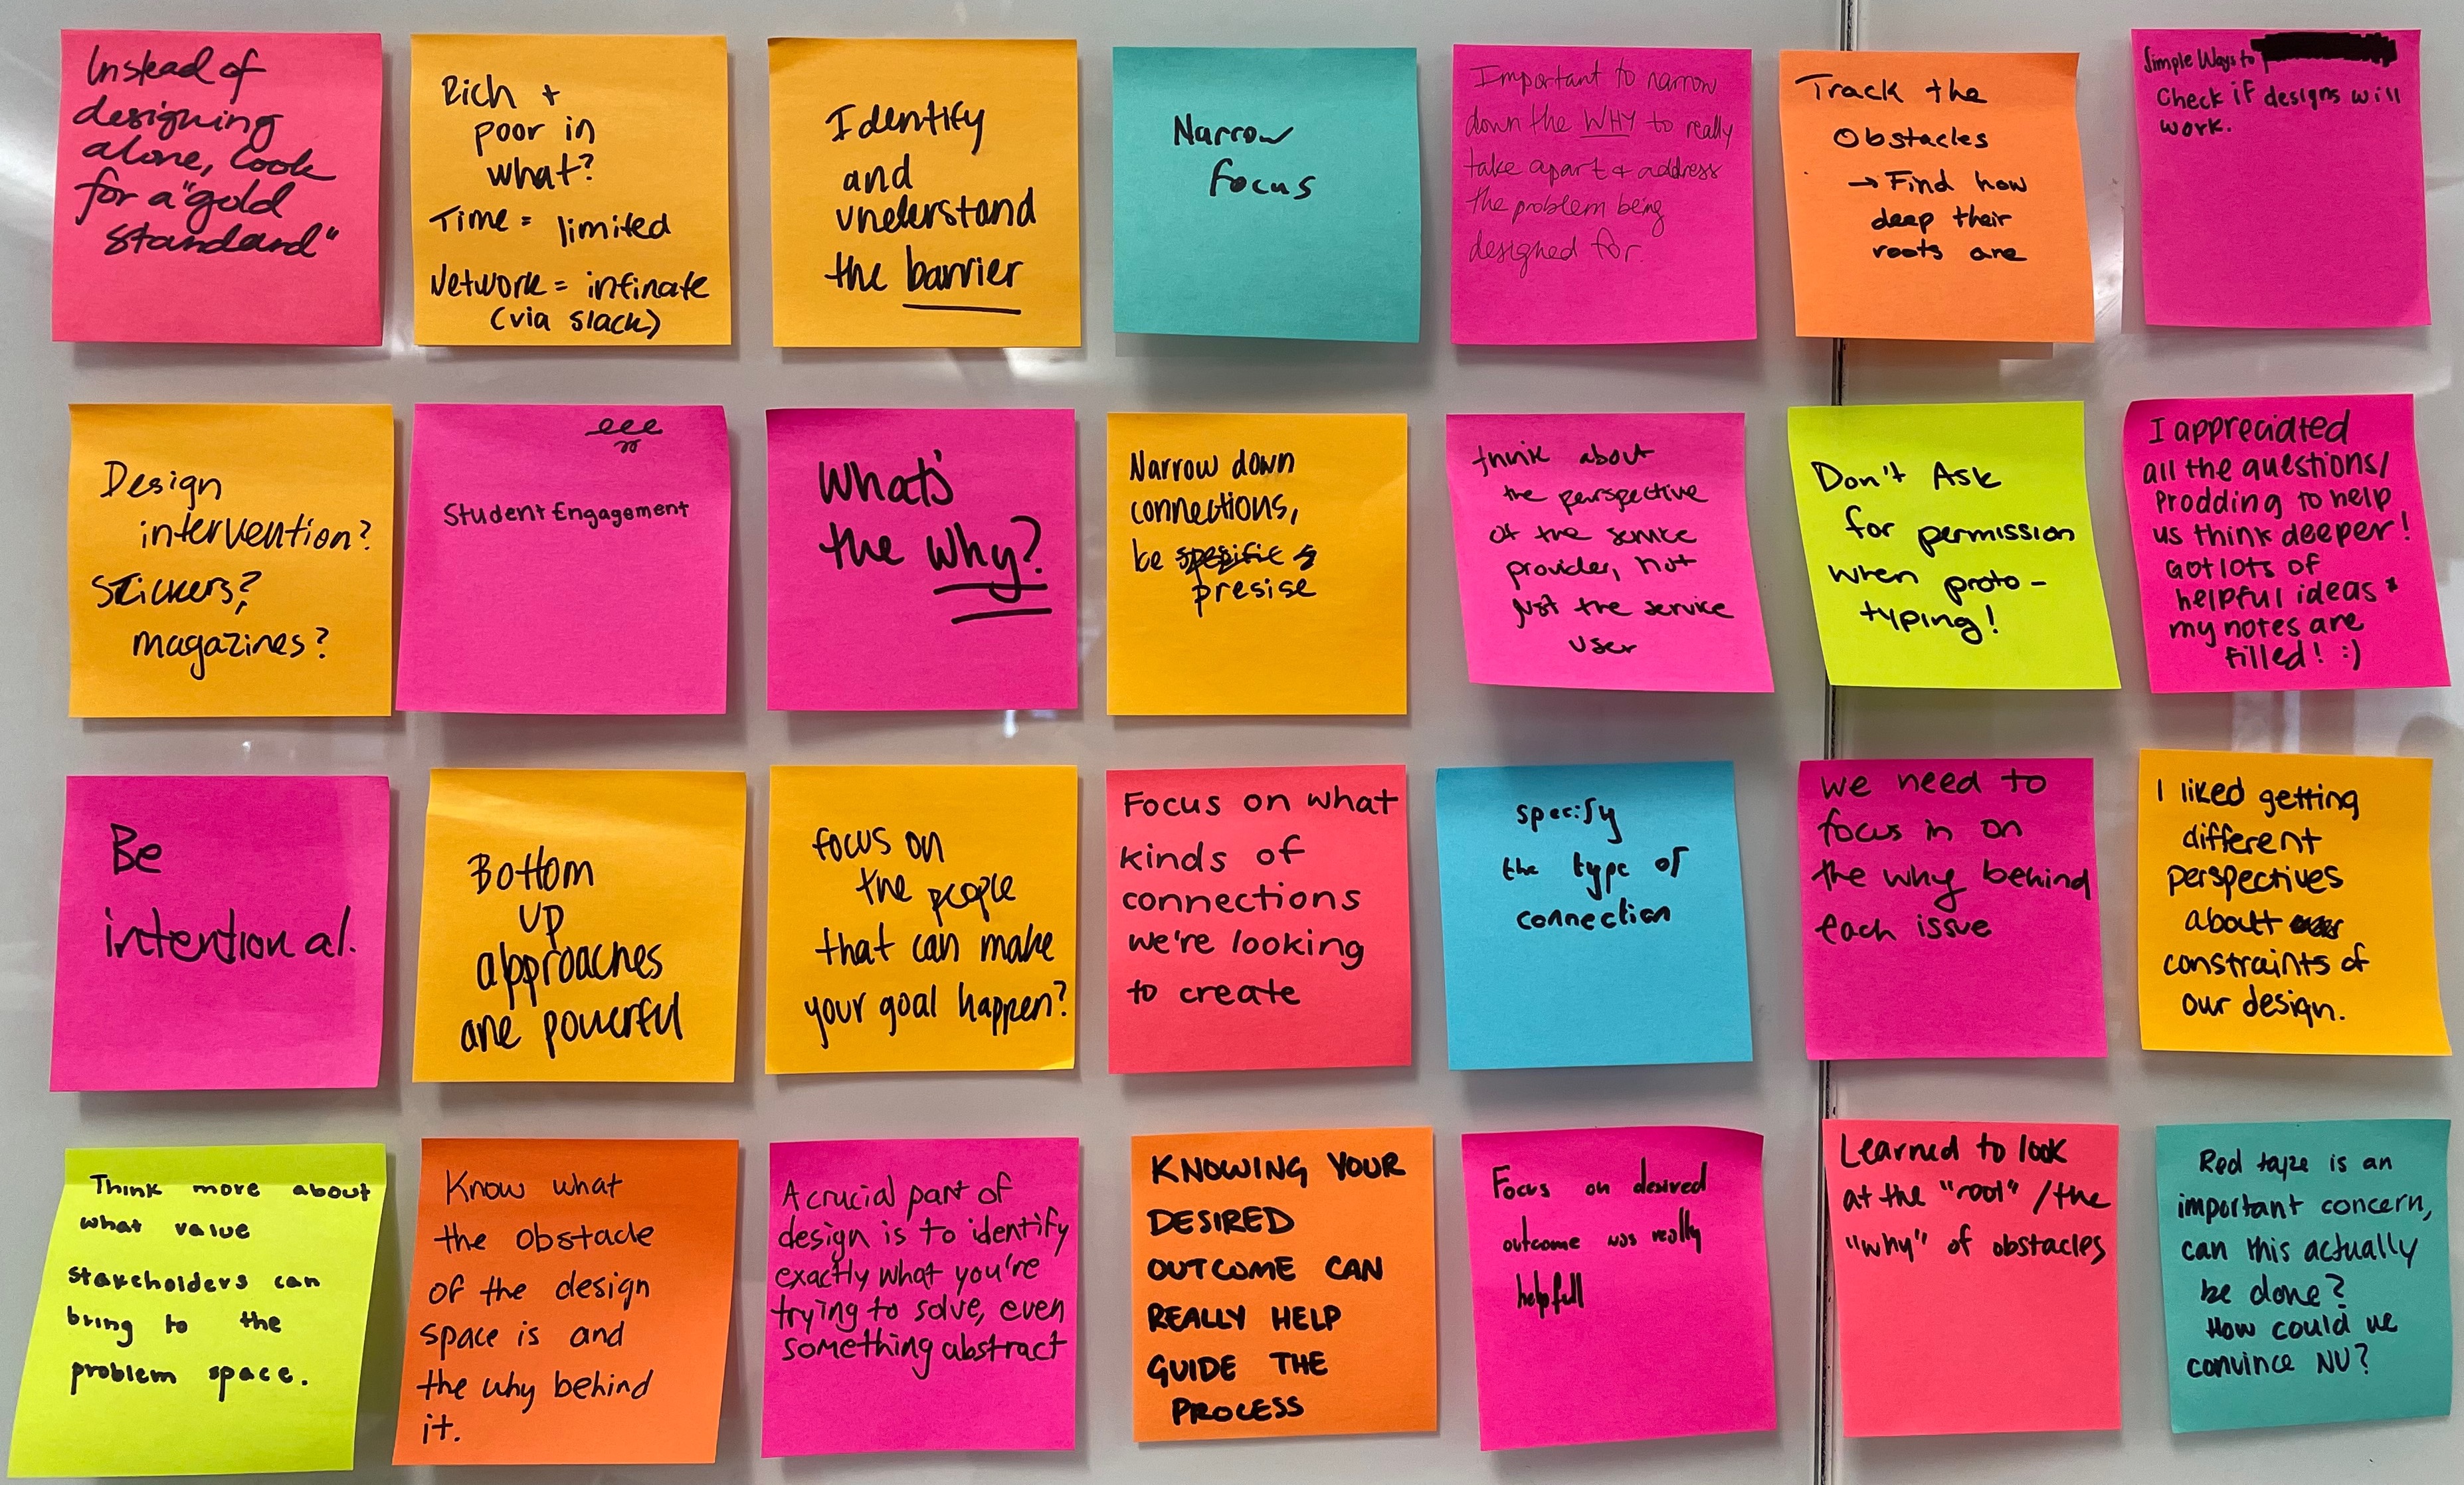 Instead of
designing
alone, look
for a "gold
standard"
Rich +
poor in
what?
Time = limited
Network = infinate
(via slack)
Identify
and
understand
the barrier
Narrow
focus
Important to narrow
down the WHY to really
take apart + address
the problem being
designed for.
Track the
Obstacles
→ Find how
deep their
roots are
Simple Ways to
Check if designs will
work.
Design
intervention?
Stickers?
magazines?
Student Engagement
What's
the why?
Narrow down
connections,
be spesific
presise
think about
the perspective
of the service
provider, not
just the service
user
Don't Ask
for permission
when proto-
typing!
I appreciated
all the questions/
Prodding to help
us think deeper!
Got lots of
helpful ideas *
my notes are
filled! :)
Be
intentional.
Bottom
up
approaches
are powerful
focus on
the people
that can make
your goal happen?
Focus on what
kinds of
connections
we're looking
to create
specify
the type of
connection
we need to
focus in on
the why behind
each issue
I liked getting
different
perspectives
about
constraints of
our design.
Think more about
what value
stakeholders can
bring to the
problem space.
Know what
the obstacle
of the design
space is and
the why behind
it.
A crucial part of
design is to identify
exactly what you're
trying to solve, even
something abstract
KNOWING YOUR
DESIRED
OUTCOME CAN
REALLY HELP
GUIDE THE
PROCESS
Focus on desired
outcome was really
helpfull
Learned to look
at the "root" / the
"why" of obstacles
Red tape is an
important concern,
can this actually
be done?
How could we
convince NU?